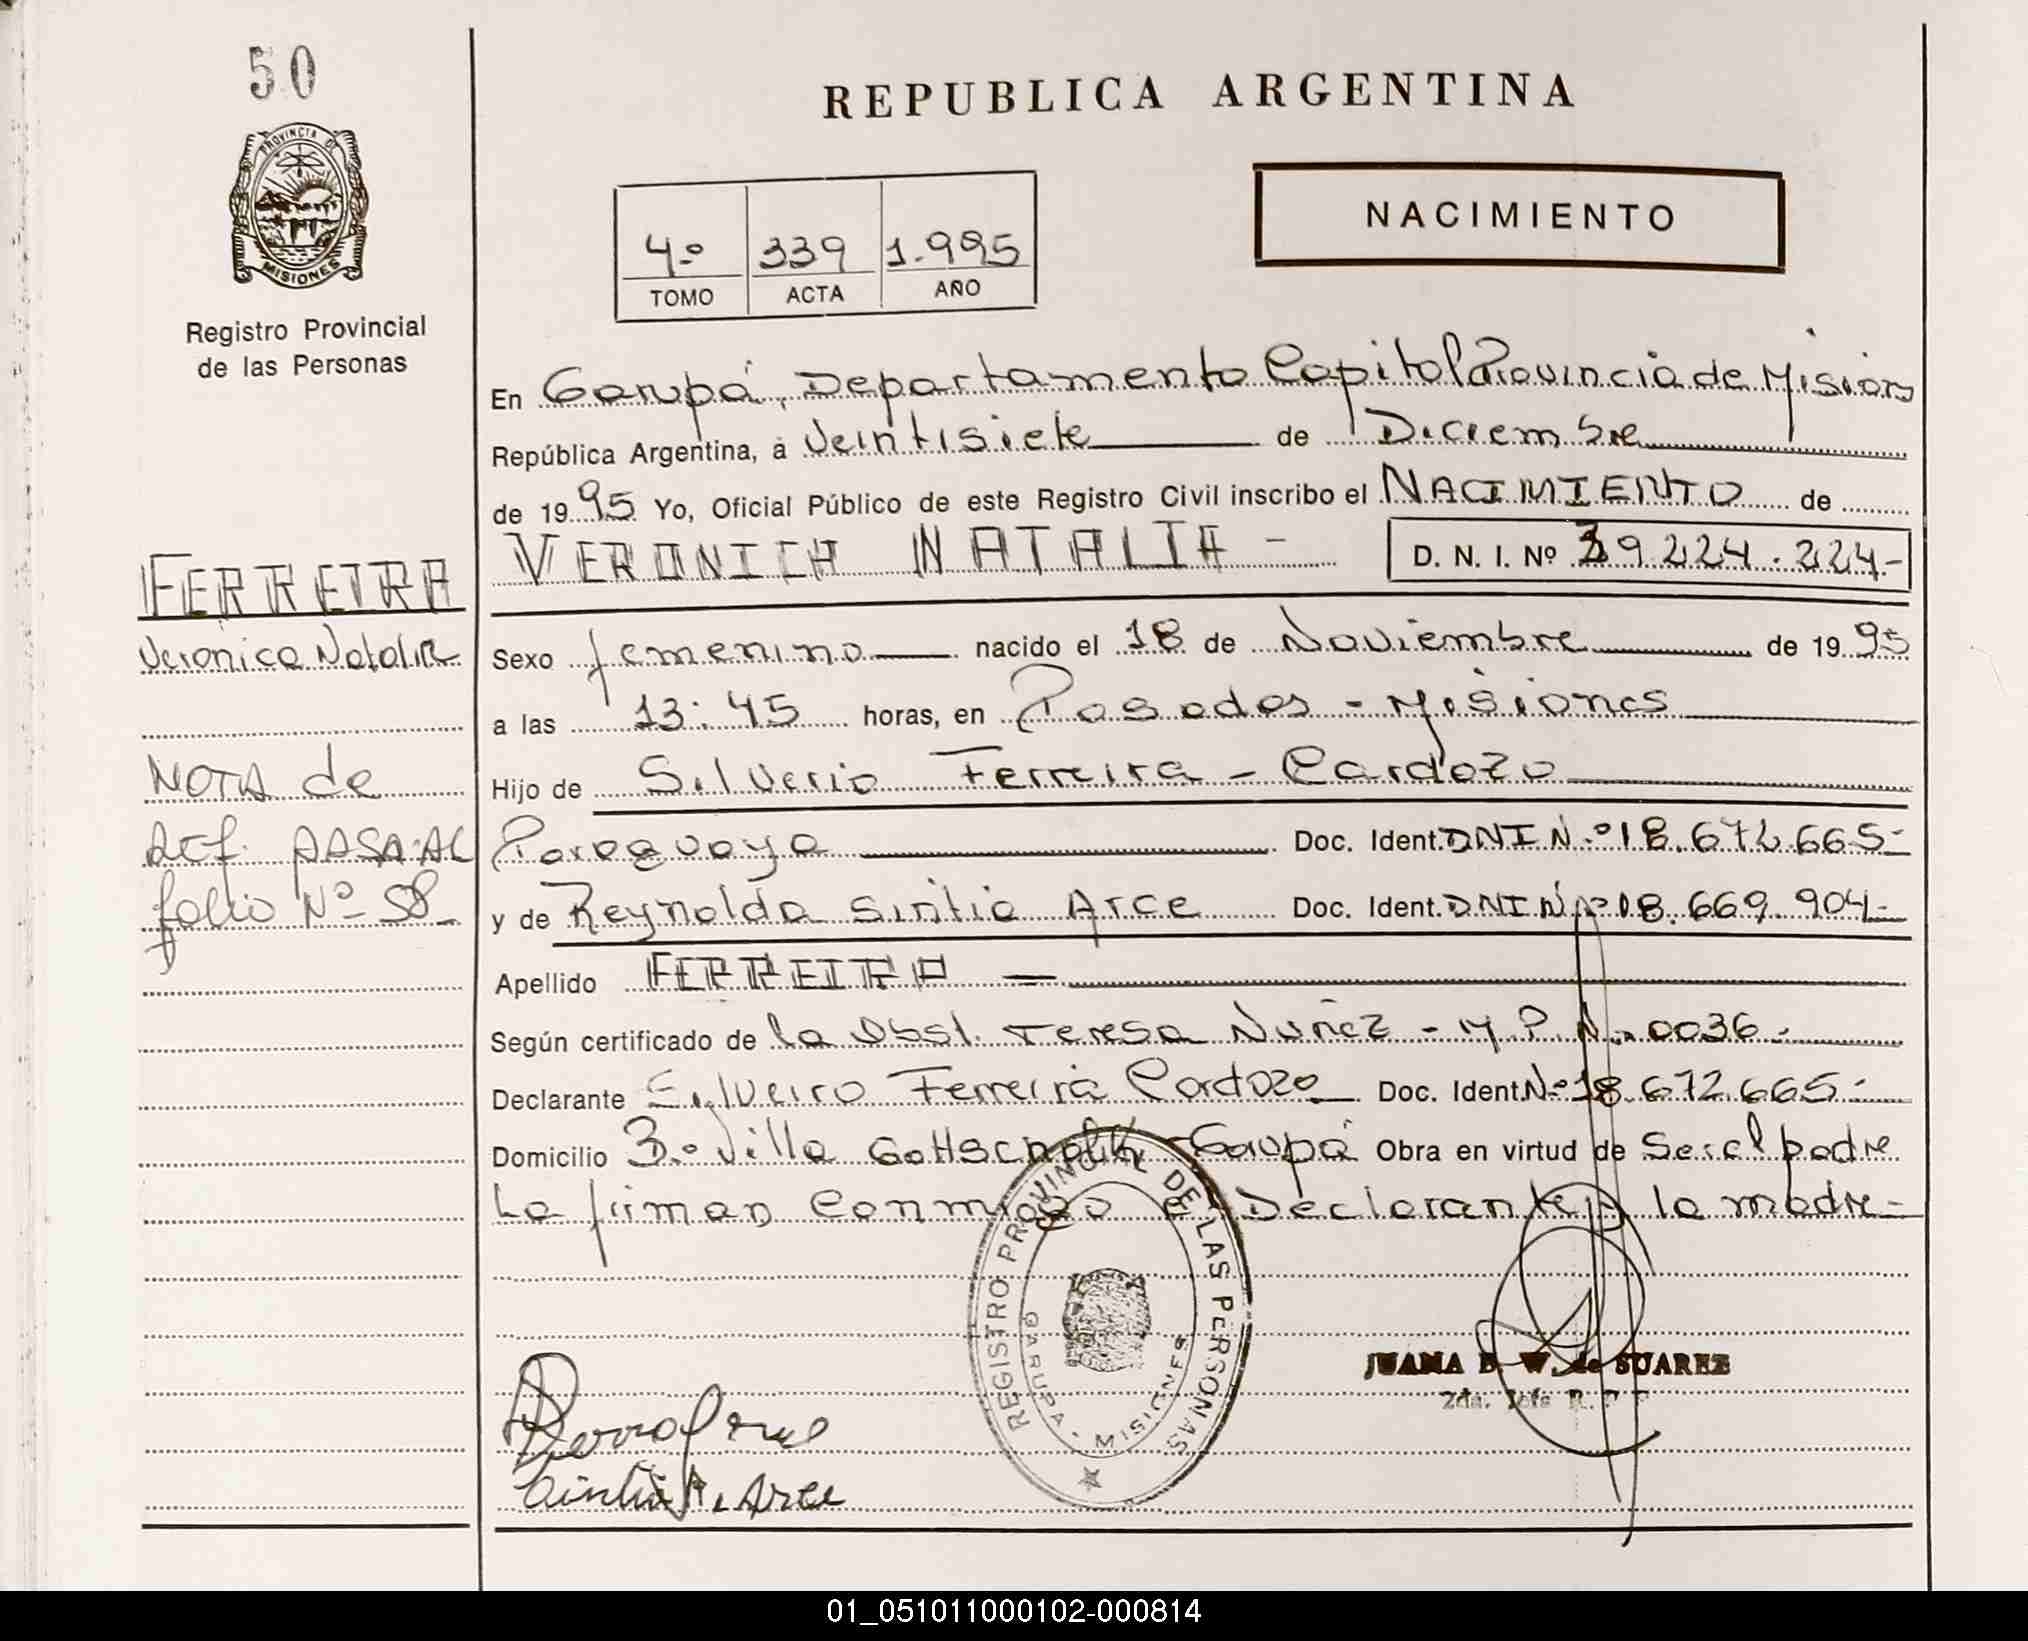 50
REPUBLICA ARGENTINA
PROVINCIA DE
MISIONES
NACIMIENTO
4º 339 1.995
TOMO ACTA AÑO
Registro Provincial
de las Personas
En Garupá, Departamento Capital Provincia de Misiones
República Argentina, a Veintisiete de Diciembre
de 1995 Yo, Oficial Público de este Registro Civil inscribo el NACIMIENTO de
VERONICA NATALIA - D. N. I. Nº 39.224.224-
FERREIRA
Veronica Natalia
Sexo femenino nacido el 18 de Noviembre de 1995
a las 13:45 horas, en Posadas - Misiones
Hijo de Silverio Ferreira - Cardozo
NOTA de
Ref. PASA AL
folio Nº 58
Paraguaya Doc. Ident. DNI N.º 18.672.665-
y de Reynolda Sintia Arce Doc. Ident. DNI Nº 18.669.904-
Apellido FERREIRA
Según certificado de la Obst. Teresa Nuñez - M.P. Nº 0036.-
Declarante Silveiro Ferreira Cardozo Doc. Ident Nº 18.672.665.-
Domicilio Bº Villa Garupá Obra en virtud de Ser el padre
La firman Conmigo el Declarante y la madre-
REGISTRO PROVINCIAL DE LAS PERSONAS
GARUPA - MISIONES
JUANA B. W. de SUAREZ
2da. Jefe R.
Cintia R. Arce
01_051011000102-000814